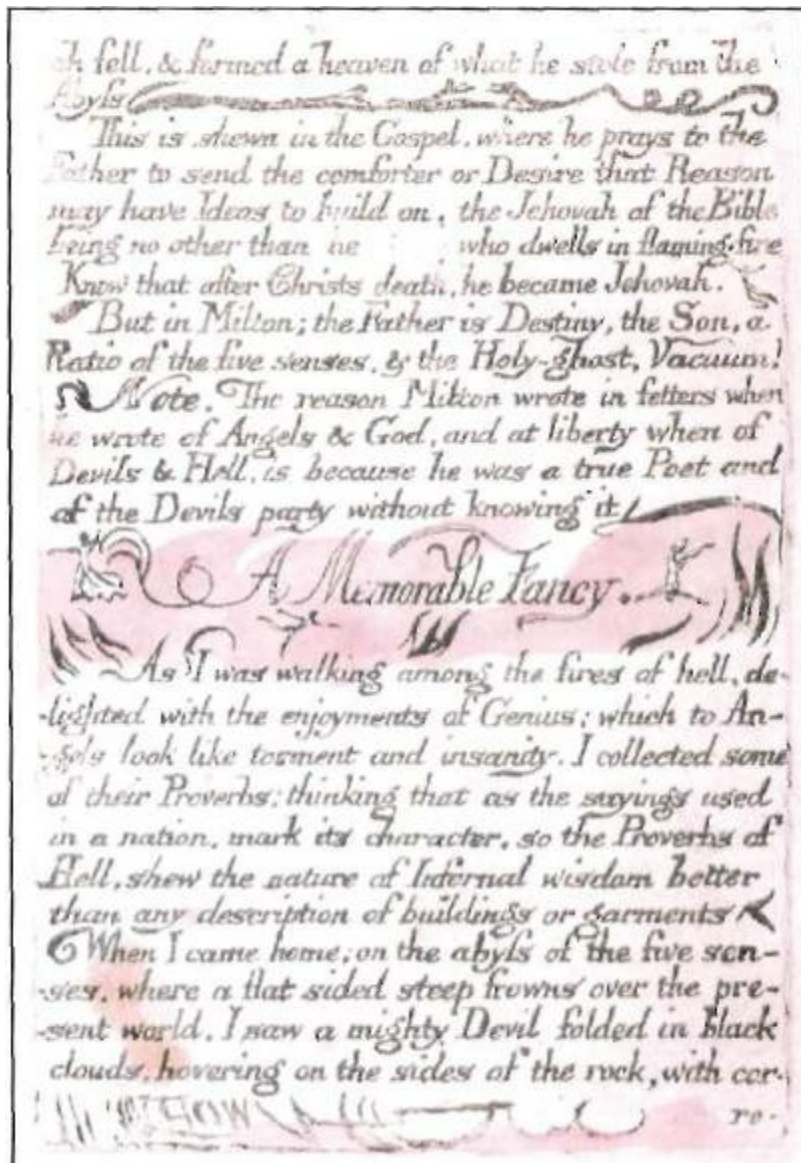 ah fell, & formed a heaven of what he stole from the
Abyss
This is shewn in the Gospel, where he prays to the
Father to send the comforter or Desire that Reason
may have Ideas to build on, the Jehovah of the Bible
being no other than he who dwells in flaming fire
Know that after Christs death, he became Jehovah.
But in Milton; the Father is Destiny, the Son, a
Ratio of the five senses, & the Holy-ghost, Vacuum!
Note. The reason Milton wrote in fetters when
he wrote of Angels & God, and at liberty when of
Devils & Hell, is because he was a true Poet and
of the Devils party without knowing it
A Memorable Fancy.
As I was walking among the fires of hell, de-
-lighted with the enjoyments of Genius; which to An-
-gels look like torment and insanity. I collected some
of their Proverbs; thinking that as the sayings used
in a nation, mark its character, so the Proverbs of
Hell, shew the nature of Infernal wisdom better
than any description of buildings or garments
When I came home; on the abyss of the five sen-
-ses, where a flat sided steep frowns over the pre-
-sent world. I saw a mighty Devil folded in black
clouds, hovering on the sides of the rock, with cor-
ro-